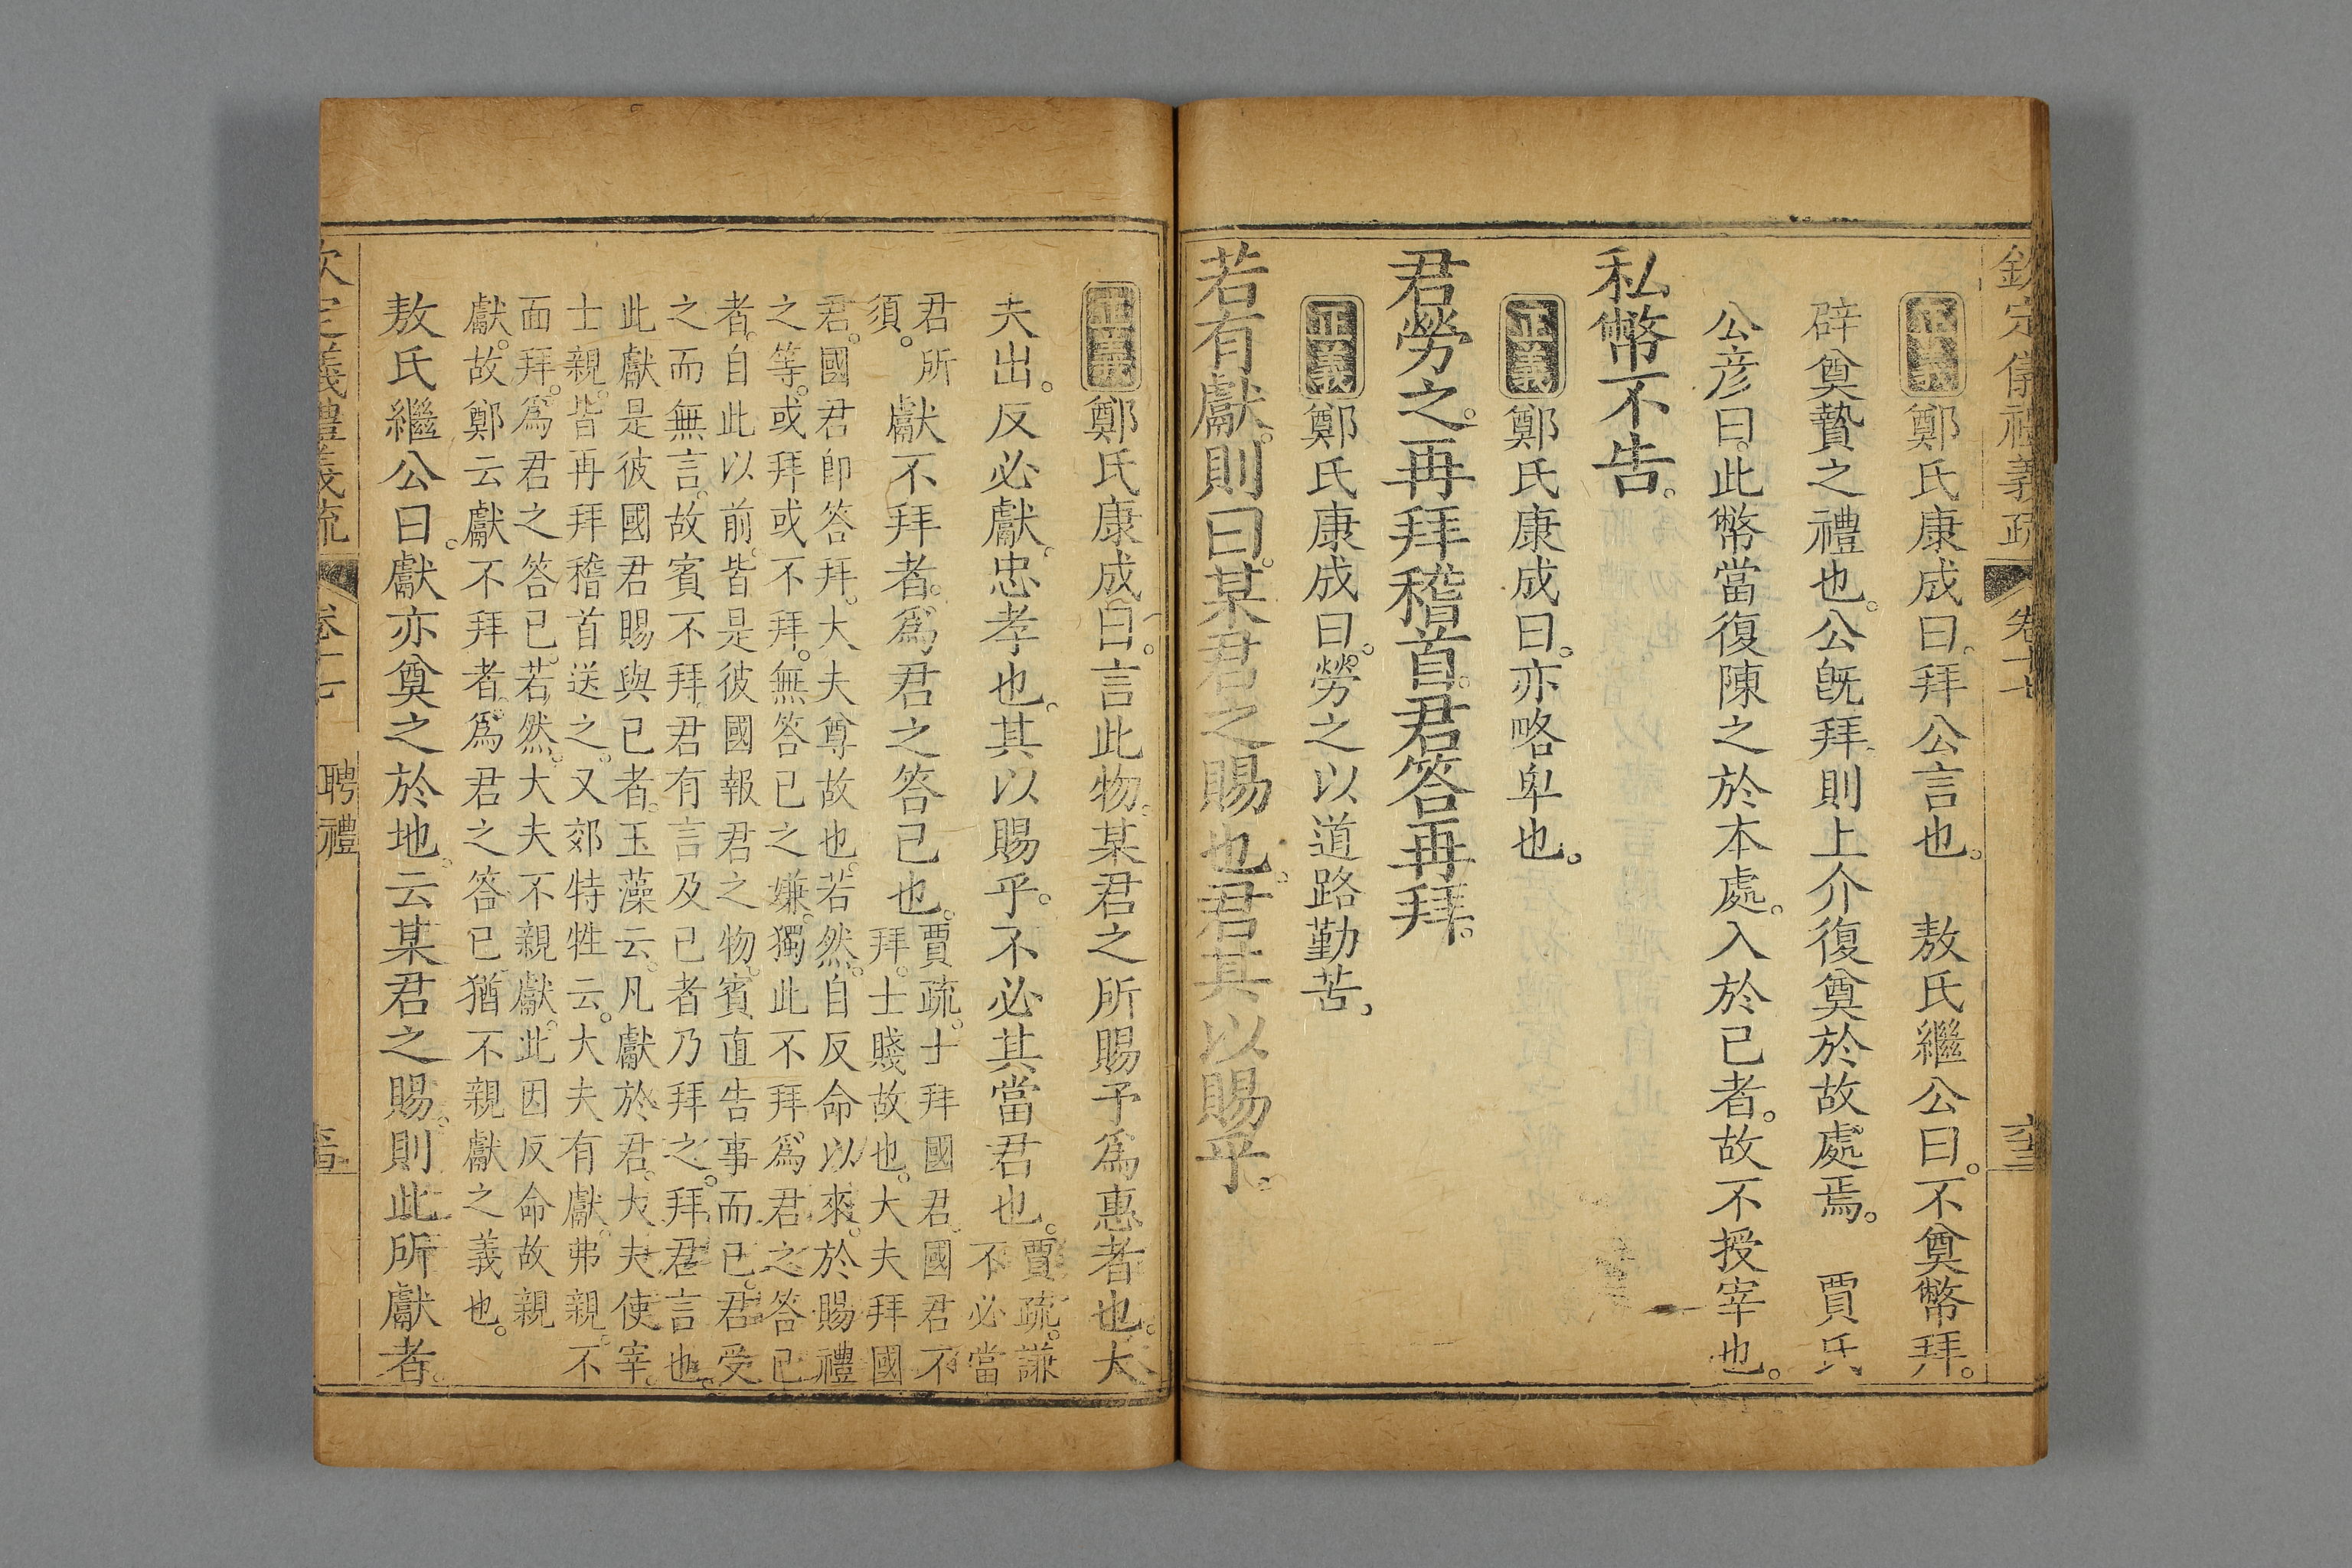 欽定儀禮義疏 卷十七 六十三
正義鄭氏康成曰。拜公言也。 敖氏繼公曰。不奠幣拜。
辟奠贄之禮也。公旣拜。則上介復奠於故處焉。 賈氏
公彦曰。此幣當復陳之於本處。入於已者。故不授宰也。
私幣不告。
正義鄭氏康成曰。亦略卑也。
君勞之。再拜稽首。君答再拜。
正義鄭氏康成曰。勞之以道路勤苦。
若有獻。則曰。某君之賜也。君其以賜乎。
正義鄭氏康成曰。言此物。某君之所賜予爲惠者也。大
夫出。反必獻。忠孝也。其以賜乎。不必其當君也。
賈疏。謙
不必當
君所
須。
獻不拜者。爲君之答已也。
賈疏。士拜國君。國君不
拜。士賤故也。大夫拜國
君。國君卽答拜。大夫尊故也。若然。自反命以來。於賜禮
之等。或拜或不拜。無答已之嫌。獨此不拜。爲君之答已
者。自此以前。皆是彼國報君之物。賓直告事而已。君受
之而無言。故賓不拜。君有言及已者乃拜之。拜君言也。
此獻是彼國君賜與已者。玉藻云。凡獻於君。大夫使宰。
士親。皆再拜稽首送之。又郊特牲云。大夫有獻。弗親。不
面拜。爲君之答已。若然。大夫不親獻。此因反命故親
獻。故鄭云獻不拜者。爲君之答已。猶不親獻之義也。
敖氏繼公曰。獻亦奠之於地。云某君之賜。則此所獻者。
欽定義禮義疏 卷十七 聘禮